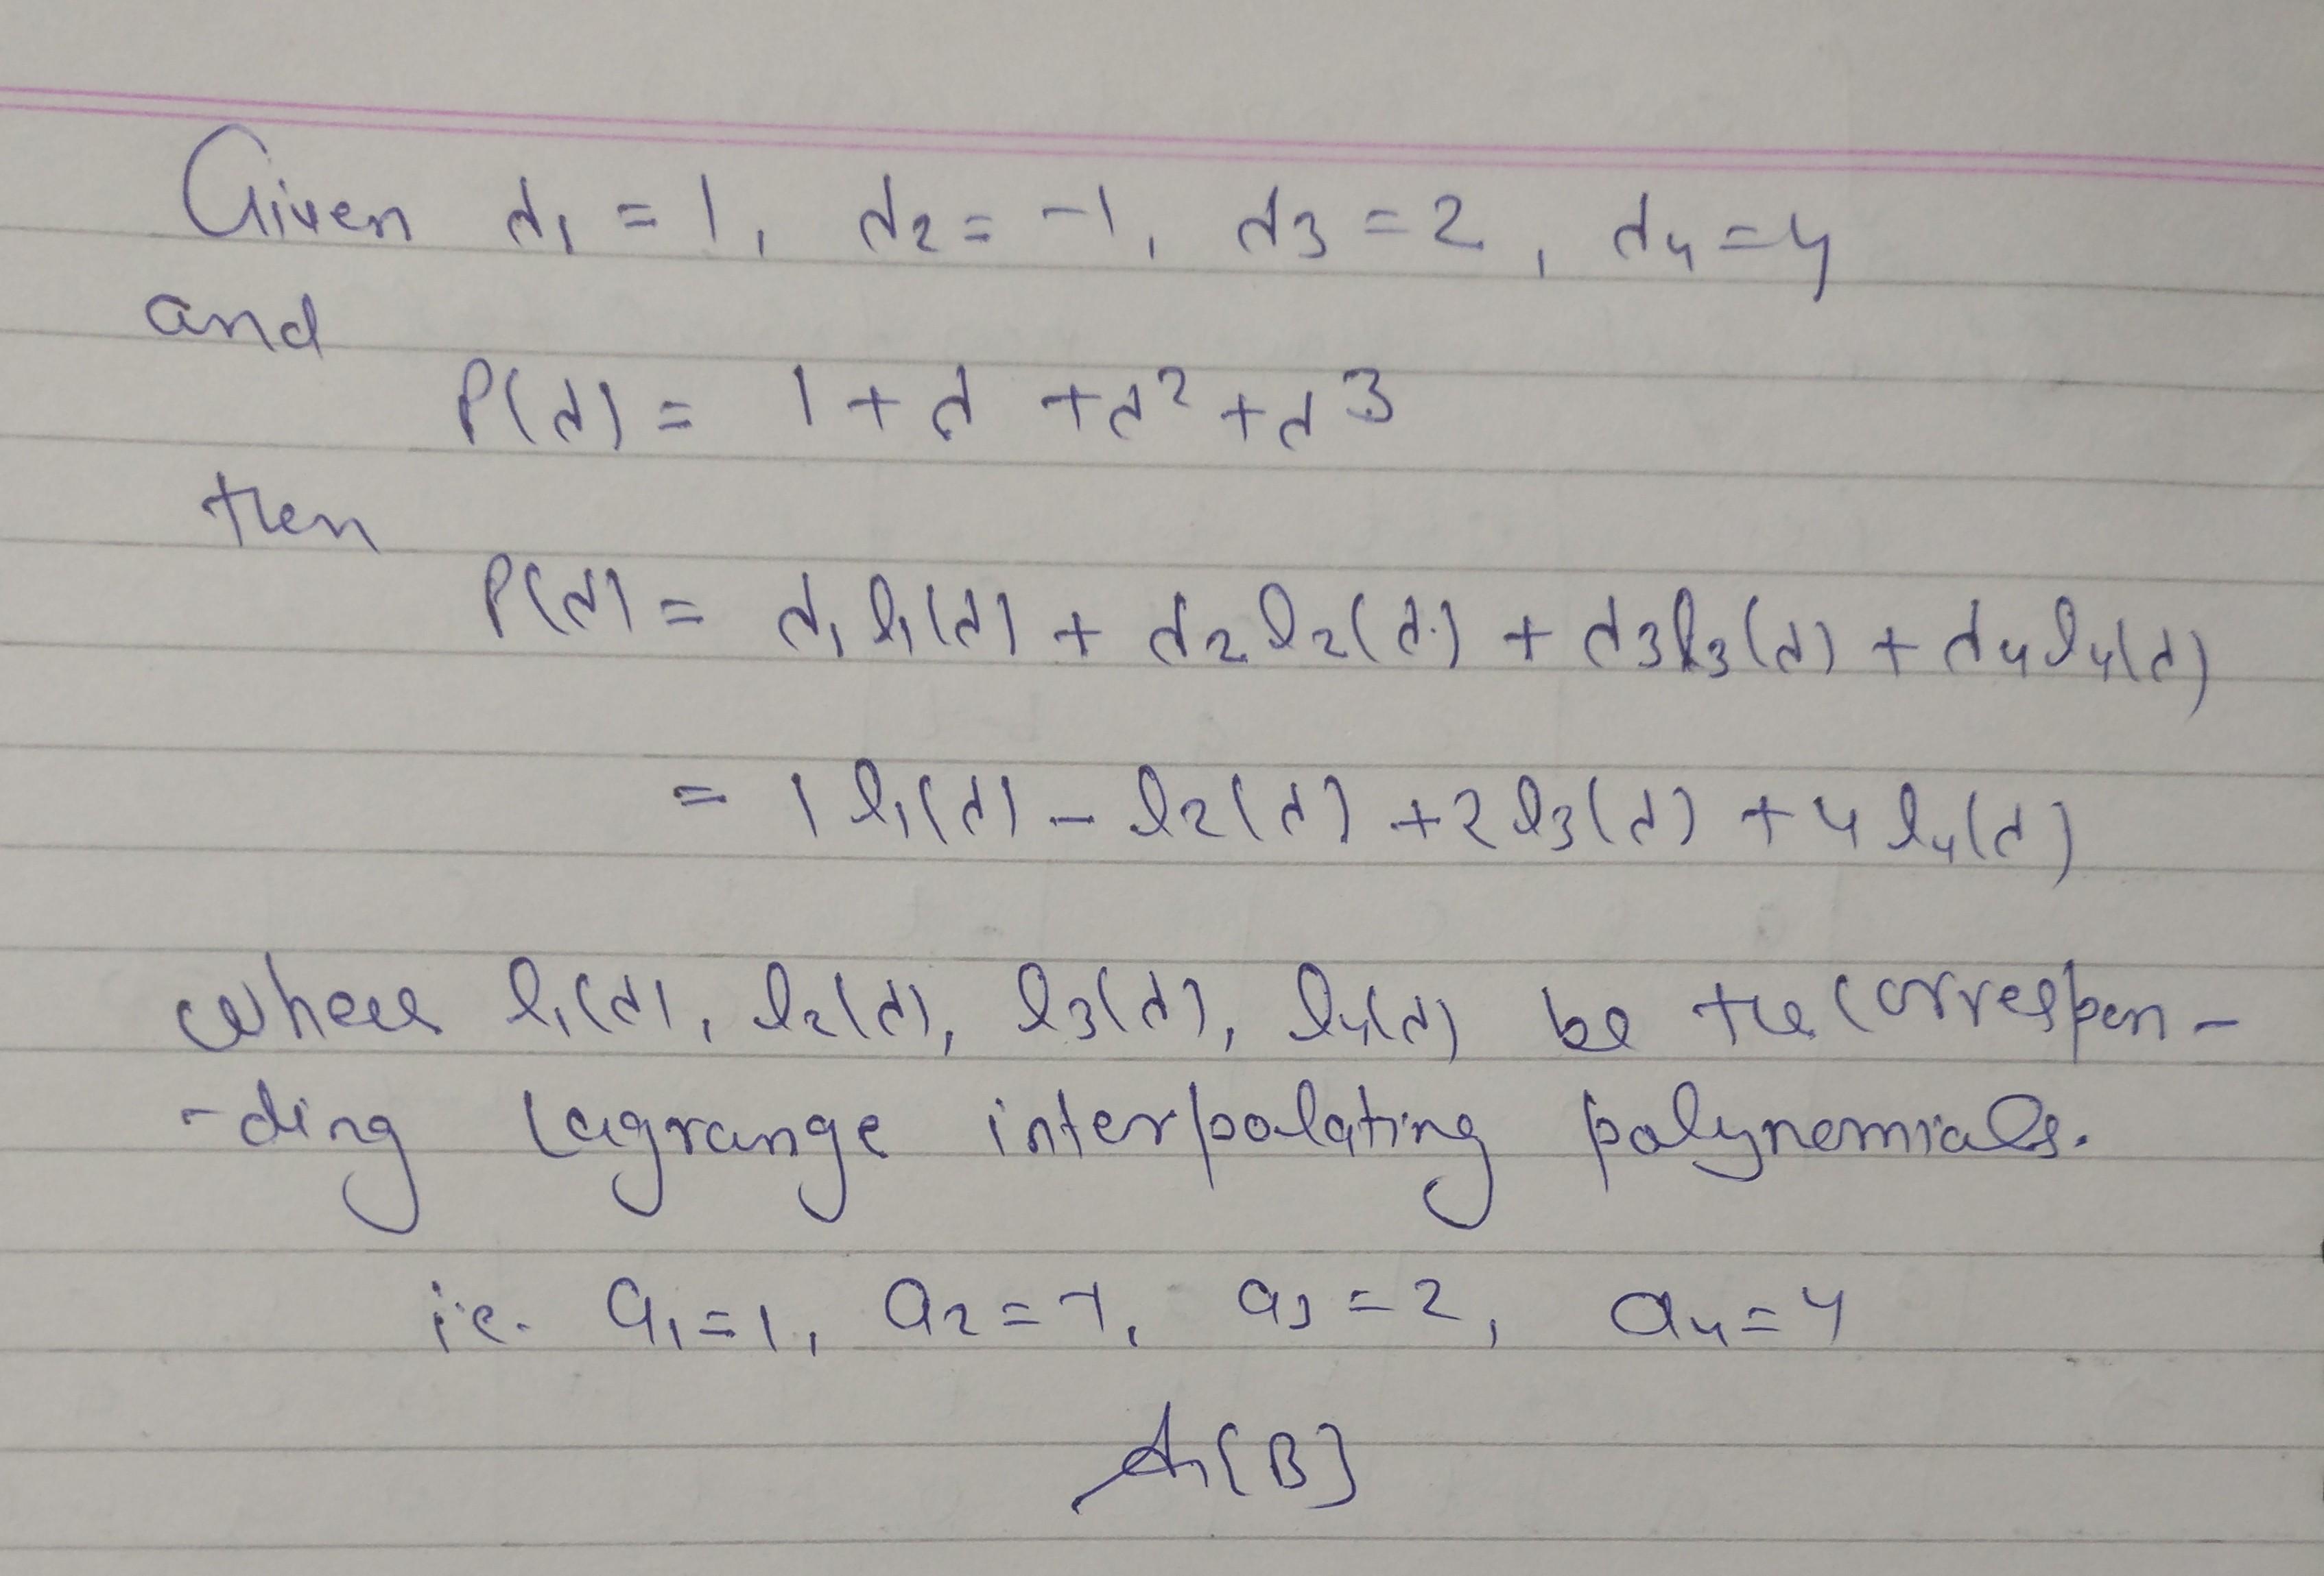 Given x₁ = 1, x₂ = -1, x₃ = 2, x₄ = 4
and
P(x) = 1 + x + x² + x³
then
P(x) = x₁ l₁(x) + x₂ l₂(x) + x₃ l₃(x) + x₄ l₄(x)
= 1 l₁(x) - l₂(x) + 2 l₃(x) + 4 l₄(x)
where l₁(x), l₂(x), l₃(x), l₄(x) be the correspon-
-ding lagrange interpolating polynomials.
i.e. a₁ = 1, a₂ = -1, a₃ = 2, a₄ = 4
A₁(B)